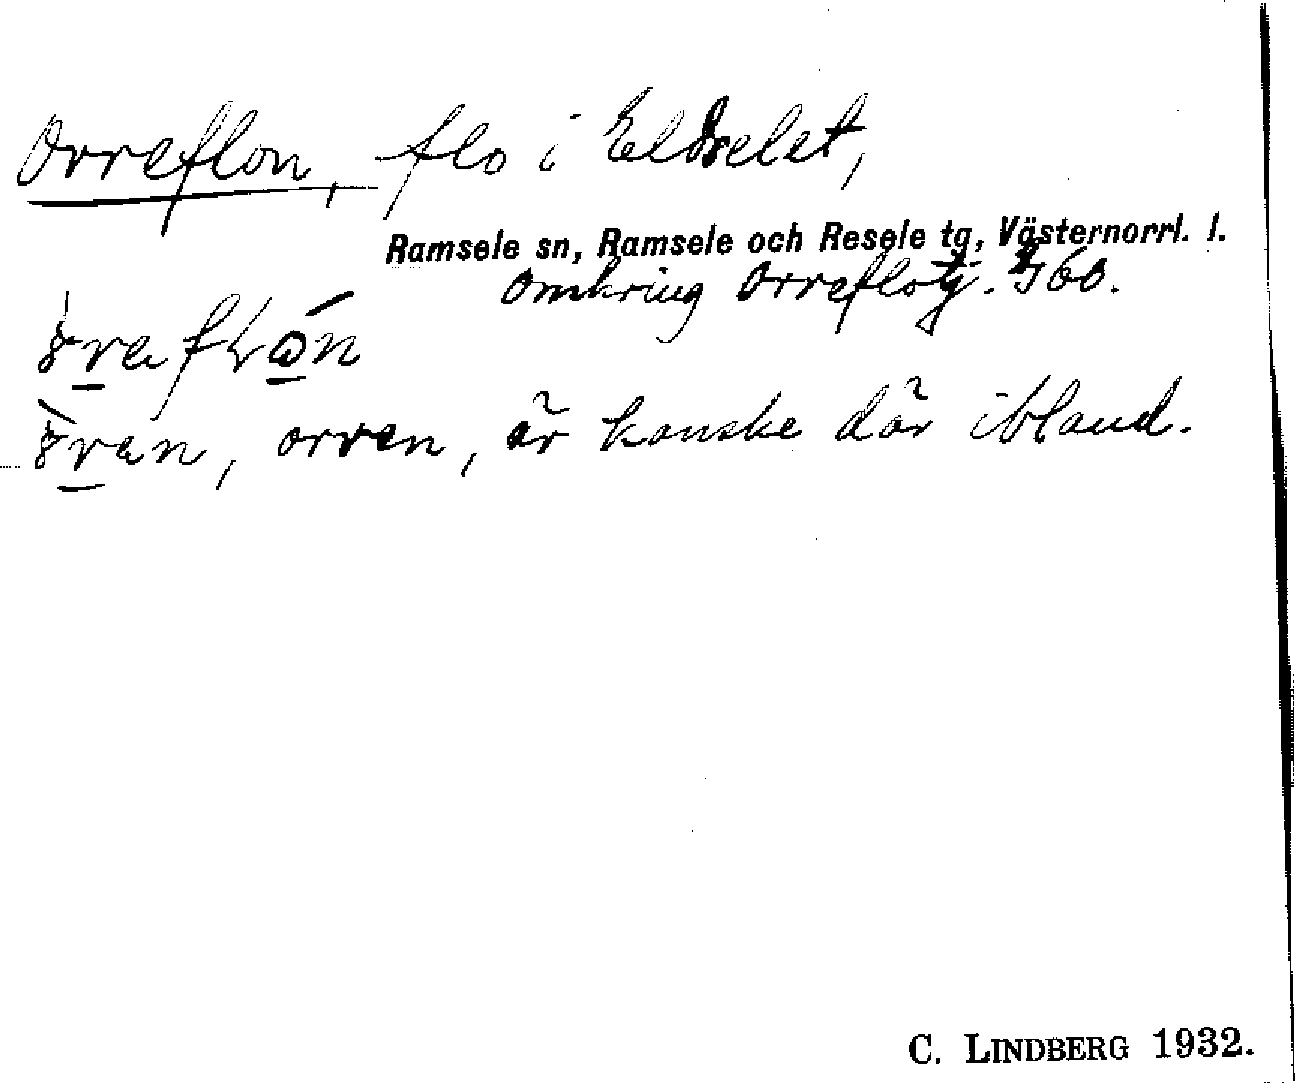 Orreflon, flo i Eldselet,
Ramsele sn, Ramsele och Resele tg, Västernorrl. l.
Omkring Orreflotj. 460.
orren, är kanske där ibland.
C. LINDBERG 1932.